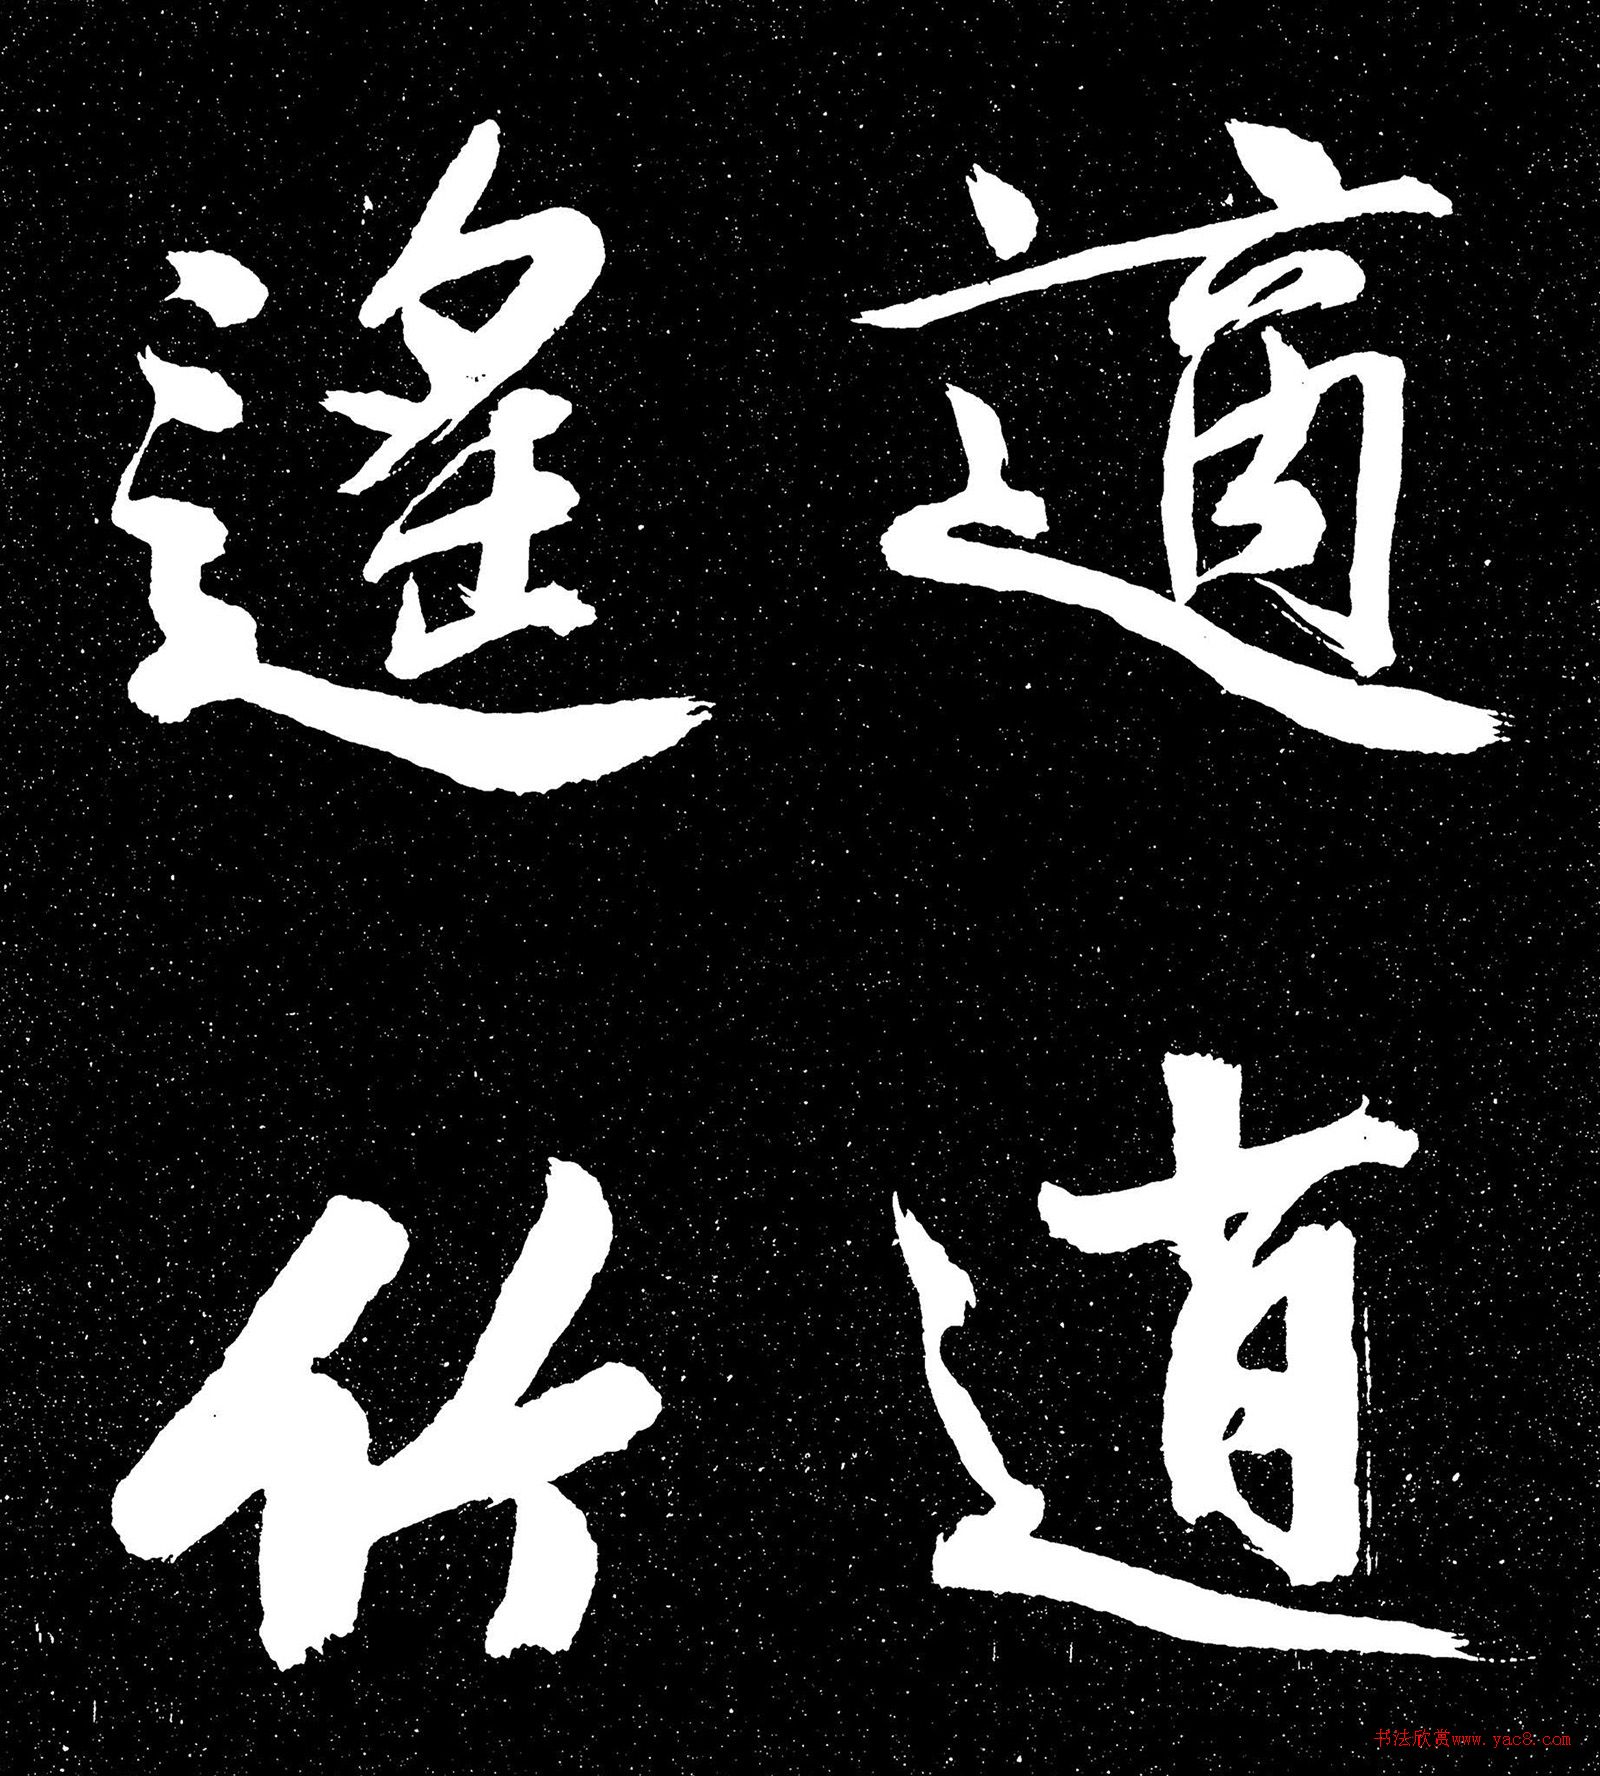 適逍
遙竹
书法欣赏www.yac8.com